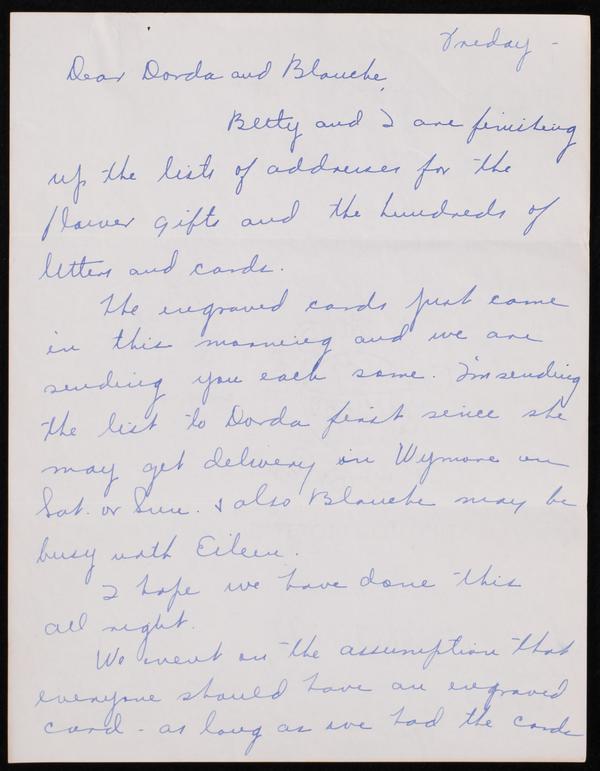 Friday -
Dear Dorda and Blanche,
Betty and I are finishing
up the lists of addresses for the
flower gifts and the hundreds of
letters and cards.
The engraved cards just came
in this morning and we are
sending you each some. I'm sending
the list to Dorda first since she
may get delivery in Wymore on
Sat. or Sun. & also Blanche may be
busy with Eileen.
I hope we have done this
all right.
We went on the assumption that
everyone should have an engraved
card - as long as we had the cards